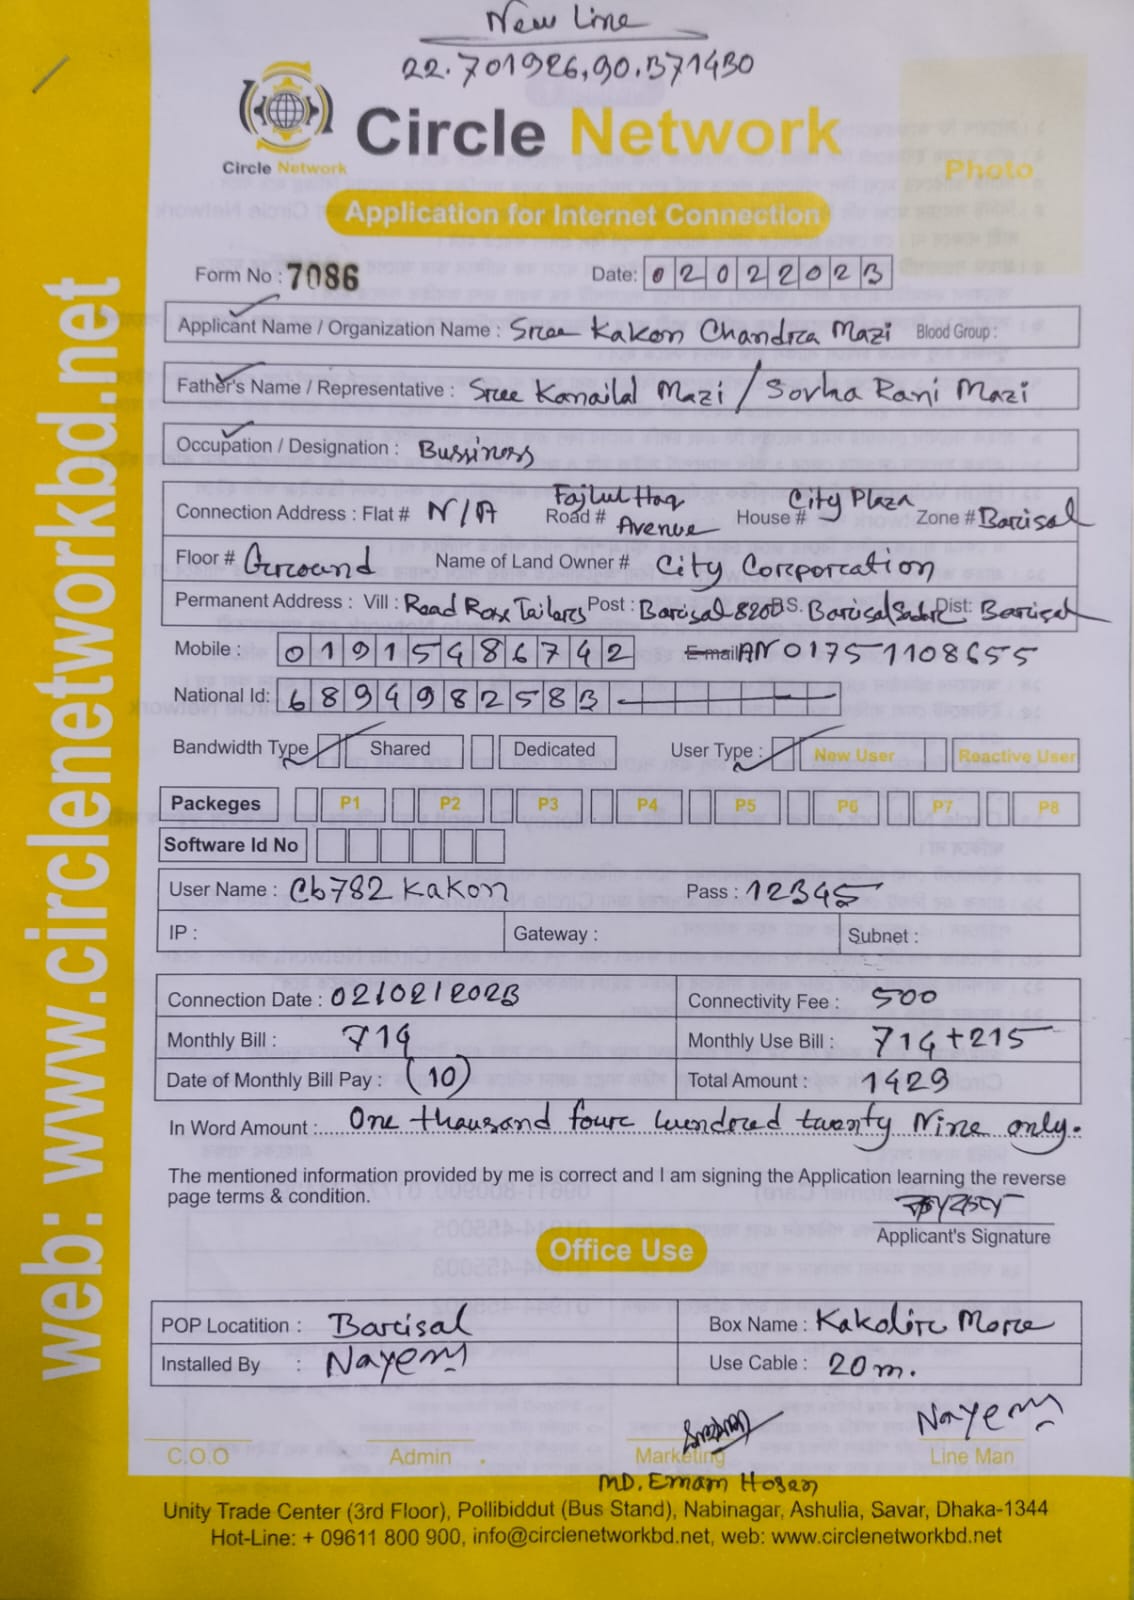 New Line
22.701926,90.371430
Circle Network
Circle Network
Photo
Application for Internet Connection
Form No : 7086 Date: 02022023
Applicant Name / Organization Name : Sree Kakon Chandra Mazi Blood Group :
Father's Name / Representative : Sree Kanailal Mazi / Sovha Rani Mazi
Occupation / Designation : Bussiness
Connection Address : Flat # N/A Road # Fajlul Haq Avenue House # City Plaza Zone # Barisal
Floor # Ground Name of Land Owner # City Corporation
Permanent Address : Vill : Road Rose Tailors Post : Barisal 8200 P.S. Barisal Sadar Dist: Barisal
Mobile : 01915486742 E-mail AN 01751108655
National Id: 6894982583
Bandwidth Type Shared Dedicated User Type : New User Reactive User
Packeges P1 P2 P3 P4 P5 P6 P7 P8
Software Id No
User Name : Cb782 kakon Pass : 12345
IP : Gateway : Subnet :
Connection Date : 02/02/2023 Connectivity Fee : 500
Monthly Bill : 714 Monthly Use Bill : 714+215
Date of Monthly Bill Pay : (10) Total Amount : 1429
In Word Amount : One thousand four hundred twenty Nine only.
The mentioned information provided by me is correct and I am signing the Application learning the reverse
page terms & condition.
Applicant's Signature
Office Use
POP Locatition : Barisal Box Name : Kakolir More
Installed By : Nayem Use Cable : 20m.
Nayem
C.O.O Admin Marketing Line Man
MD. Emam Hosen
Unity Trade Center (3rd Floor), Pollibiddut (Bus Stand), Nabinagar, Ashulia, Savar, Dhaka-1344
Hot-Line: + 09611 800 900, info@circlenetworkbd.net, web: www.circlenetworkbd.net
web: www.circlenetworkbd.net